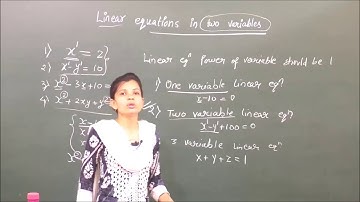 Linear equations in two variables
1) x¹ = 2
2) x¹ - y¹ = 10
3) x² - 3x + 10
4) x² + 2xy + y²
Linear eqⁿ Power of variable should be 1
1) One variable linear eqⁿ
x-10=0
Two variable linear eqⁿ
x¹-y¹+100=0
3 variable linear eqⁿ
x + y + z = 1